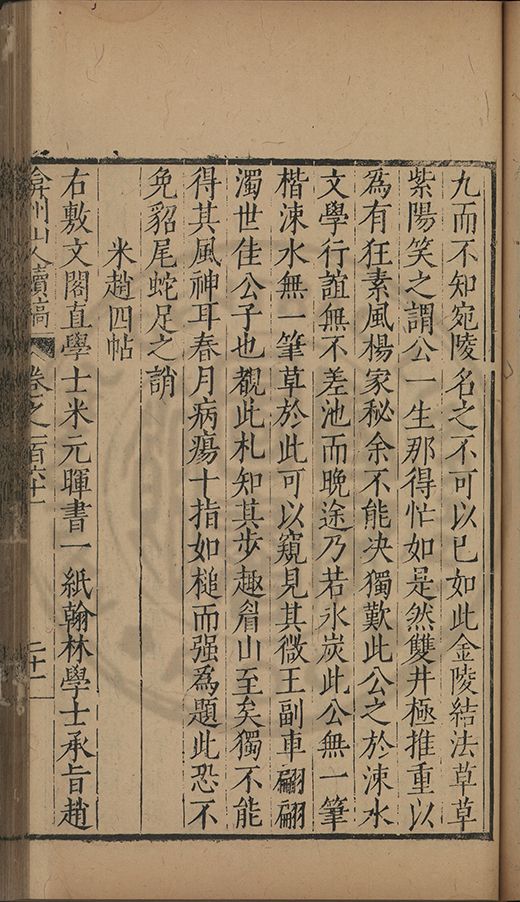 九而不知宛陵名之不可以已如此金陵結法草草
紫陽笑之謂公一生那得忙如是然雙井極推重以
為有狂素風楊家秘余不能决獨歎此公之於涑水
文學行誼無不差池而晚途乃若氷炭此公無一筆
楷涑水無一筆草於此可以窺見其微王副車翩翩
濁世佳公子也覩此札知其步趣眉山至矣獨不能
得其風神耳春月病瘍十指如槌而强為題此恐不
免貂尾蛇足之誚
米趙四帖
右敷文閣直學士米元暉書一紙翰林學士承旨趙
弇州山人續稿 卷之一百六十一 二十二